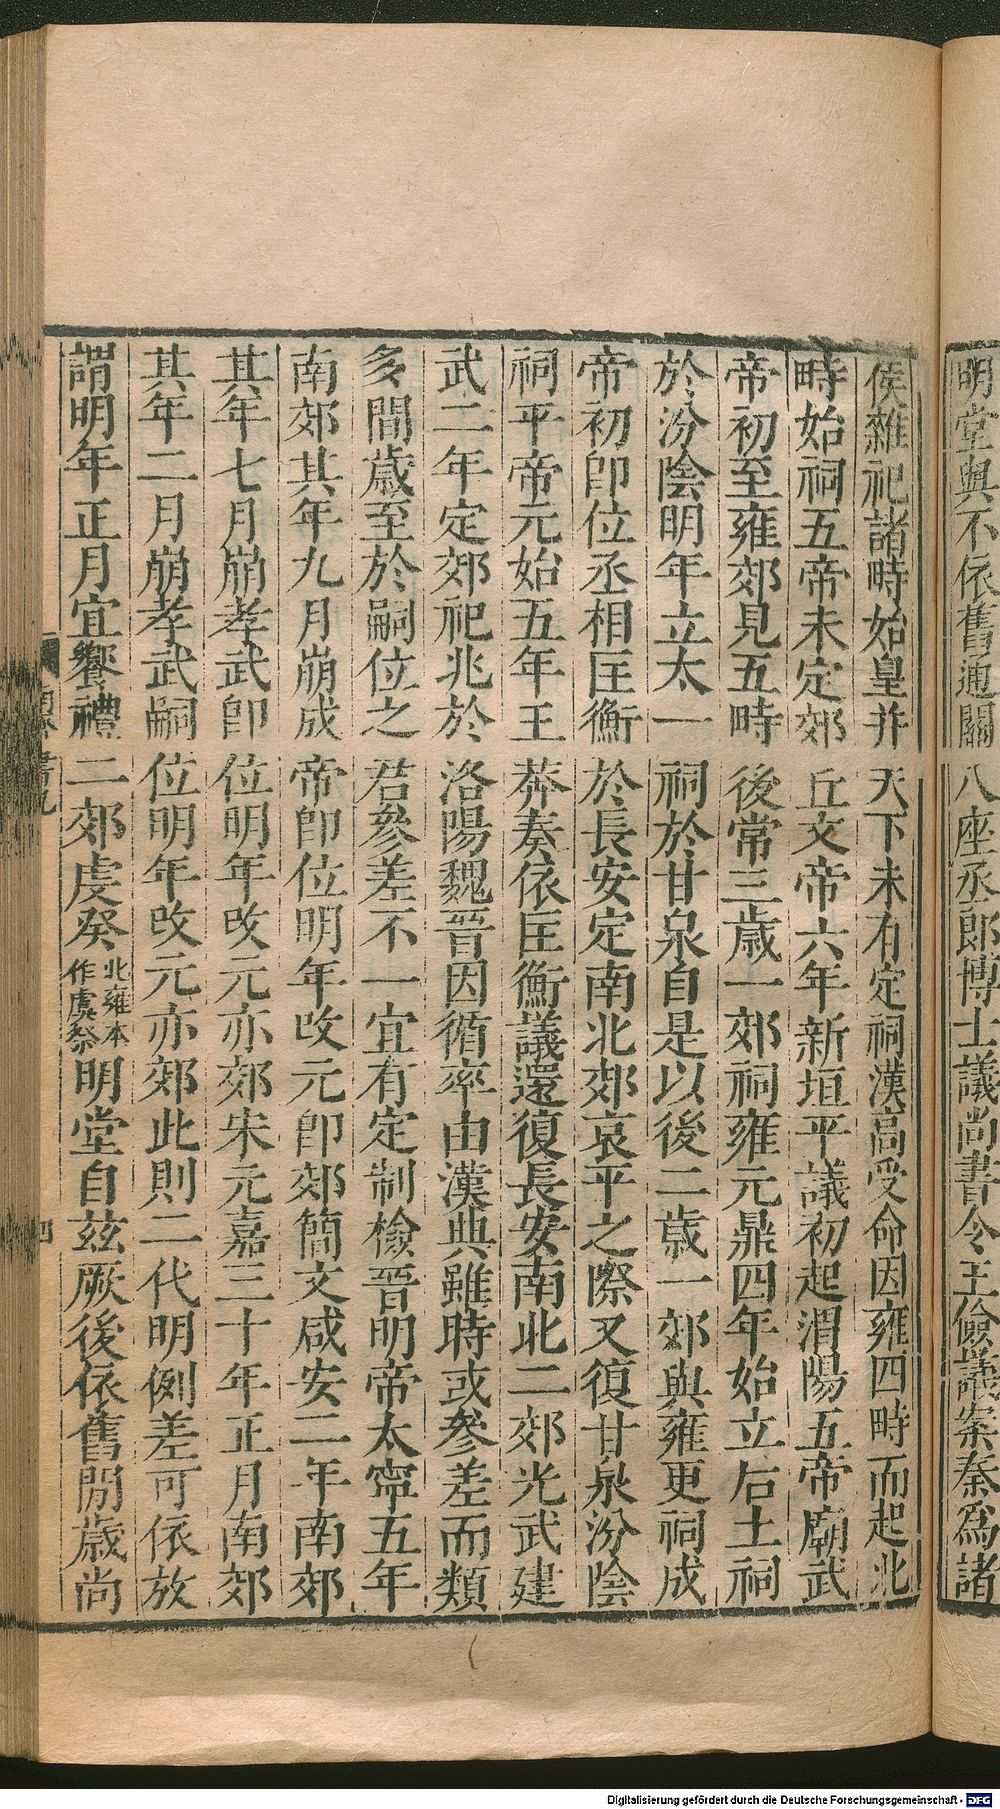 明堂與不依舊通關八座丞郎博士議尚書令王儉議案秦爲諸
侯雜祀諸畤始皇并天下未有定祠漢高受命因雍四畤而起北
畤始祠五帝未定郊丘文帝六年新垣平議初起渭陽五帝廟武
帝初至雍郊見五畤後常三歲一郊祠雍元鼎四年始立后土祠
於汾陰明年立太一祠於甘泉自是以後二歲一郊與雍更祠成
帝初卽位丞相匡衡於長安定南北郊哀平之際又復甘泉汾陰
祠平帝元始五年王莽奏依匡衡議還復長安南北二郊光武建
武二年定郊祀兆於洛陽魏晉因循率由漢典雖時或參差而類
多間歲至於嗣位之君參差不一宜有定制檢晉明帝太寧五年
南郊其年九月崩成帝卽位明年改元卽郊簡文咸安二年南郊
其年七月崩孝武卽位明年改元亦郊宋元嘉三十年正月南郊
其年二月崩孝武嗣位明年改元亦郊此則二代明例差可依放
謂明年正月宜饗禮二郊虔癸北雍本作虞祭明堂自茲厥後依舊閒歲尚
四
Digitalisierung gefördert durch die Deutsche Forschungsgemeinschaft - DFG